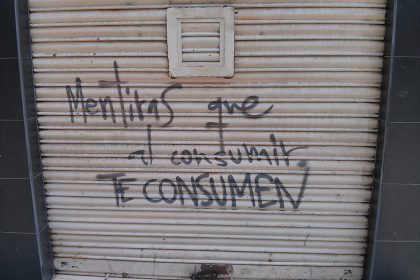 Mentiras que
al consumir
TE CONSUMEN